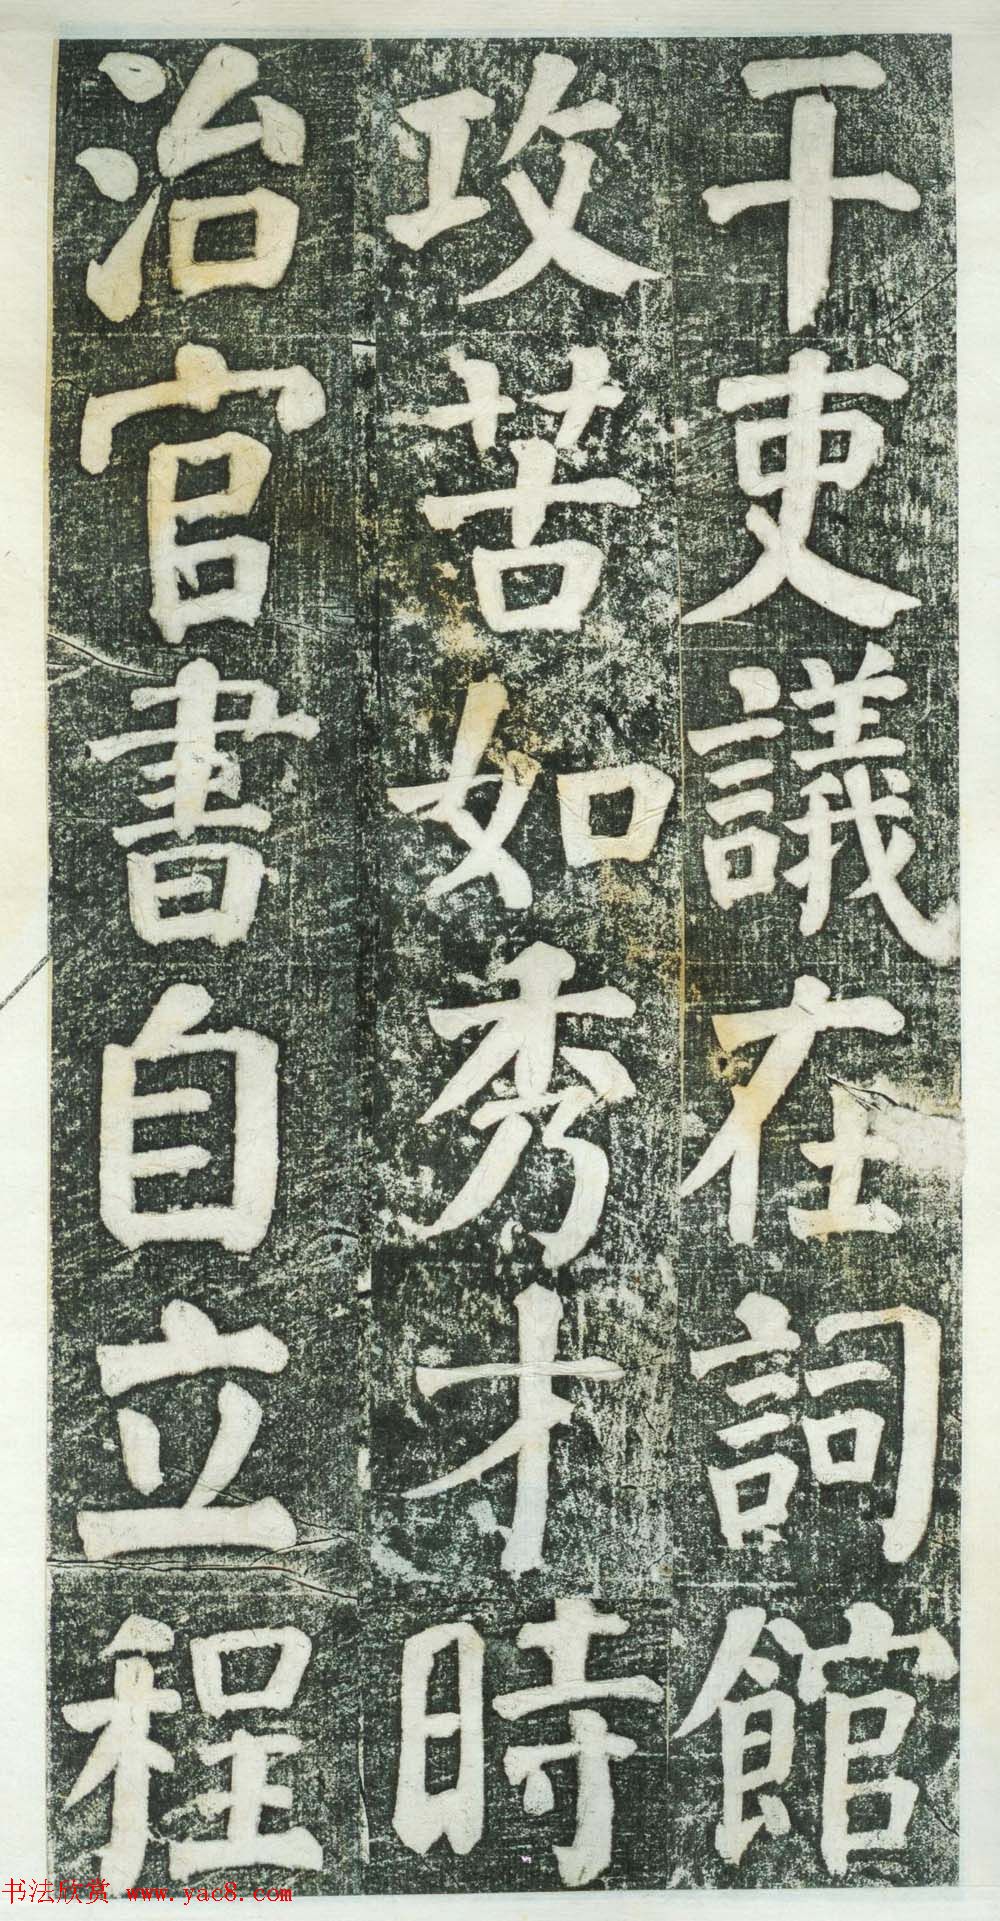 干吏議在詞館
攻苦如秀才時
治官書自立程
书法欣赏 www.yac8.com